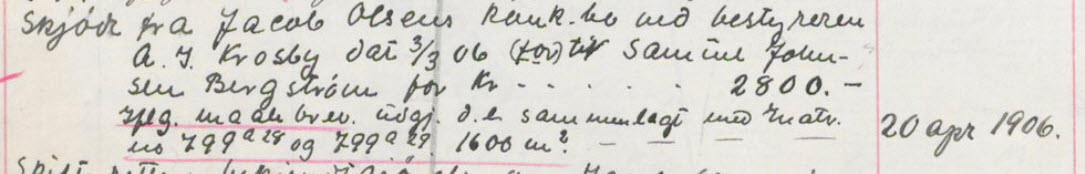 Skjöde fra Jacob Olsens konk.bo ved bestyreren
A. J. Krosby dat 3/3 06 (for) til Samuel John-
sen Bergström for Kr - - - - - - 2800.-
Iflg. maalebrev. udgj. d.e. sammenlagt med Matr.
no 799 a 28 og 799 a 29 1600 m². - - - 20 apr 1906.